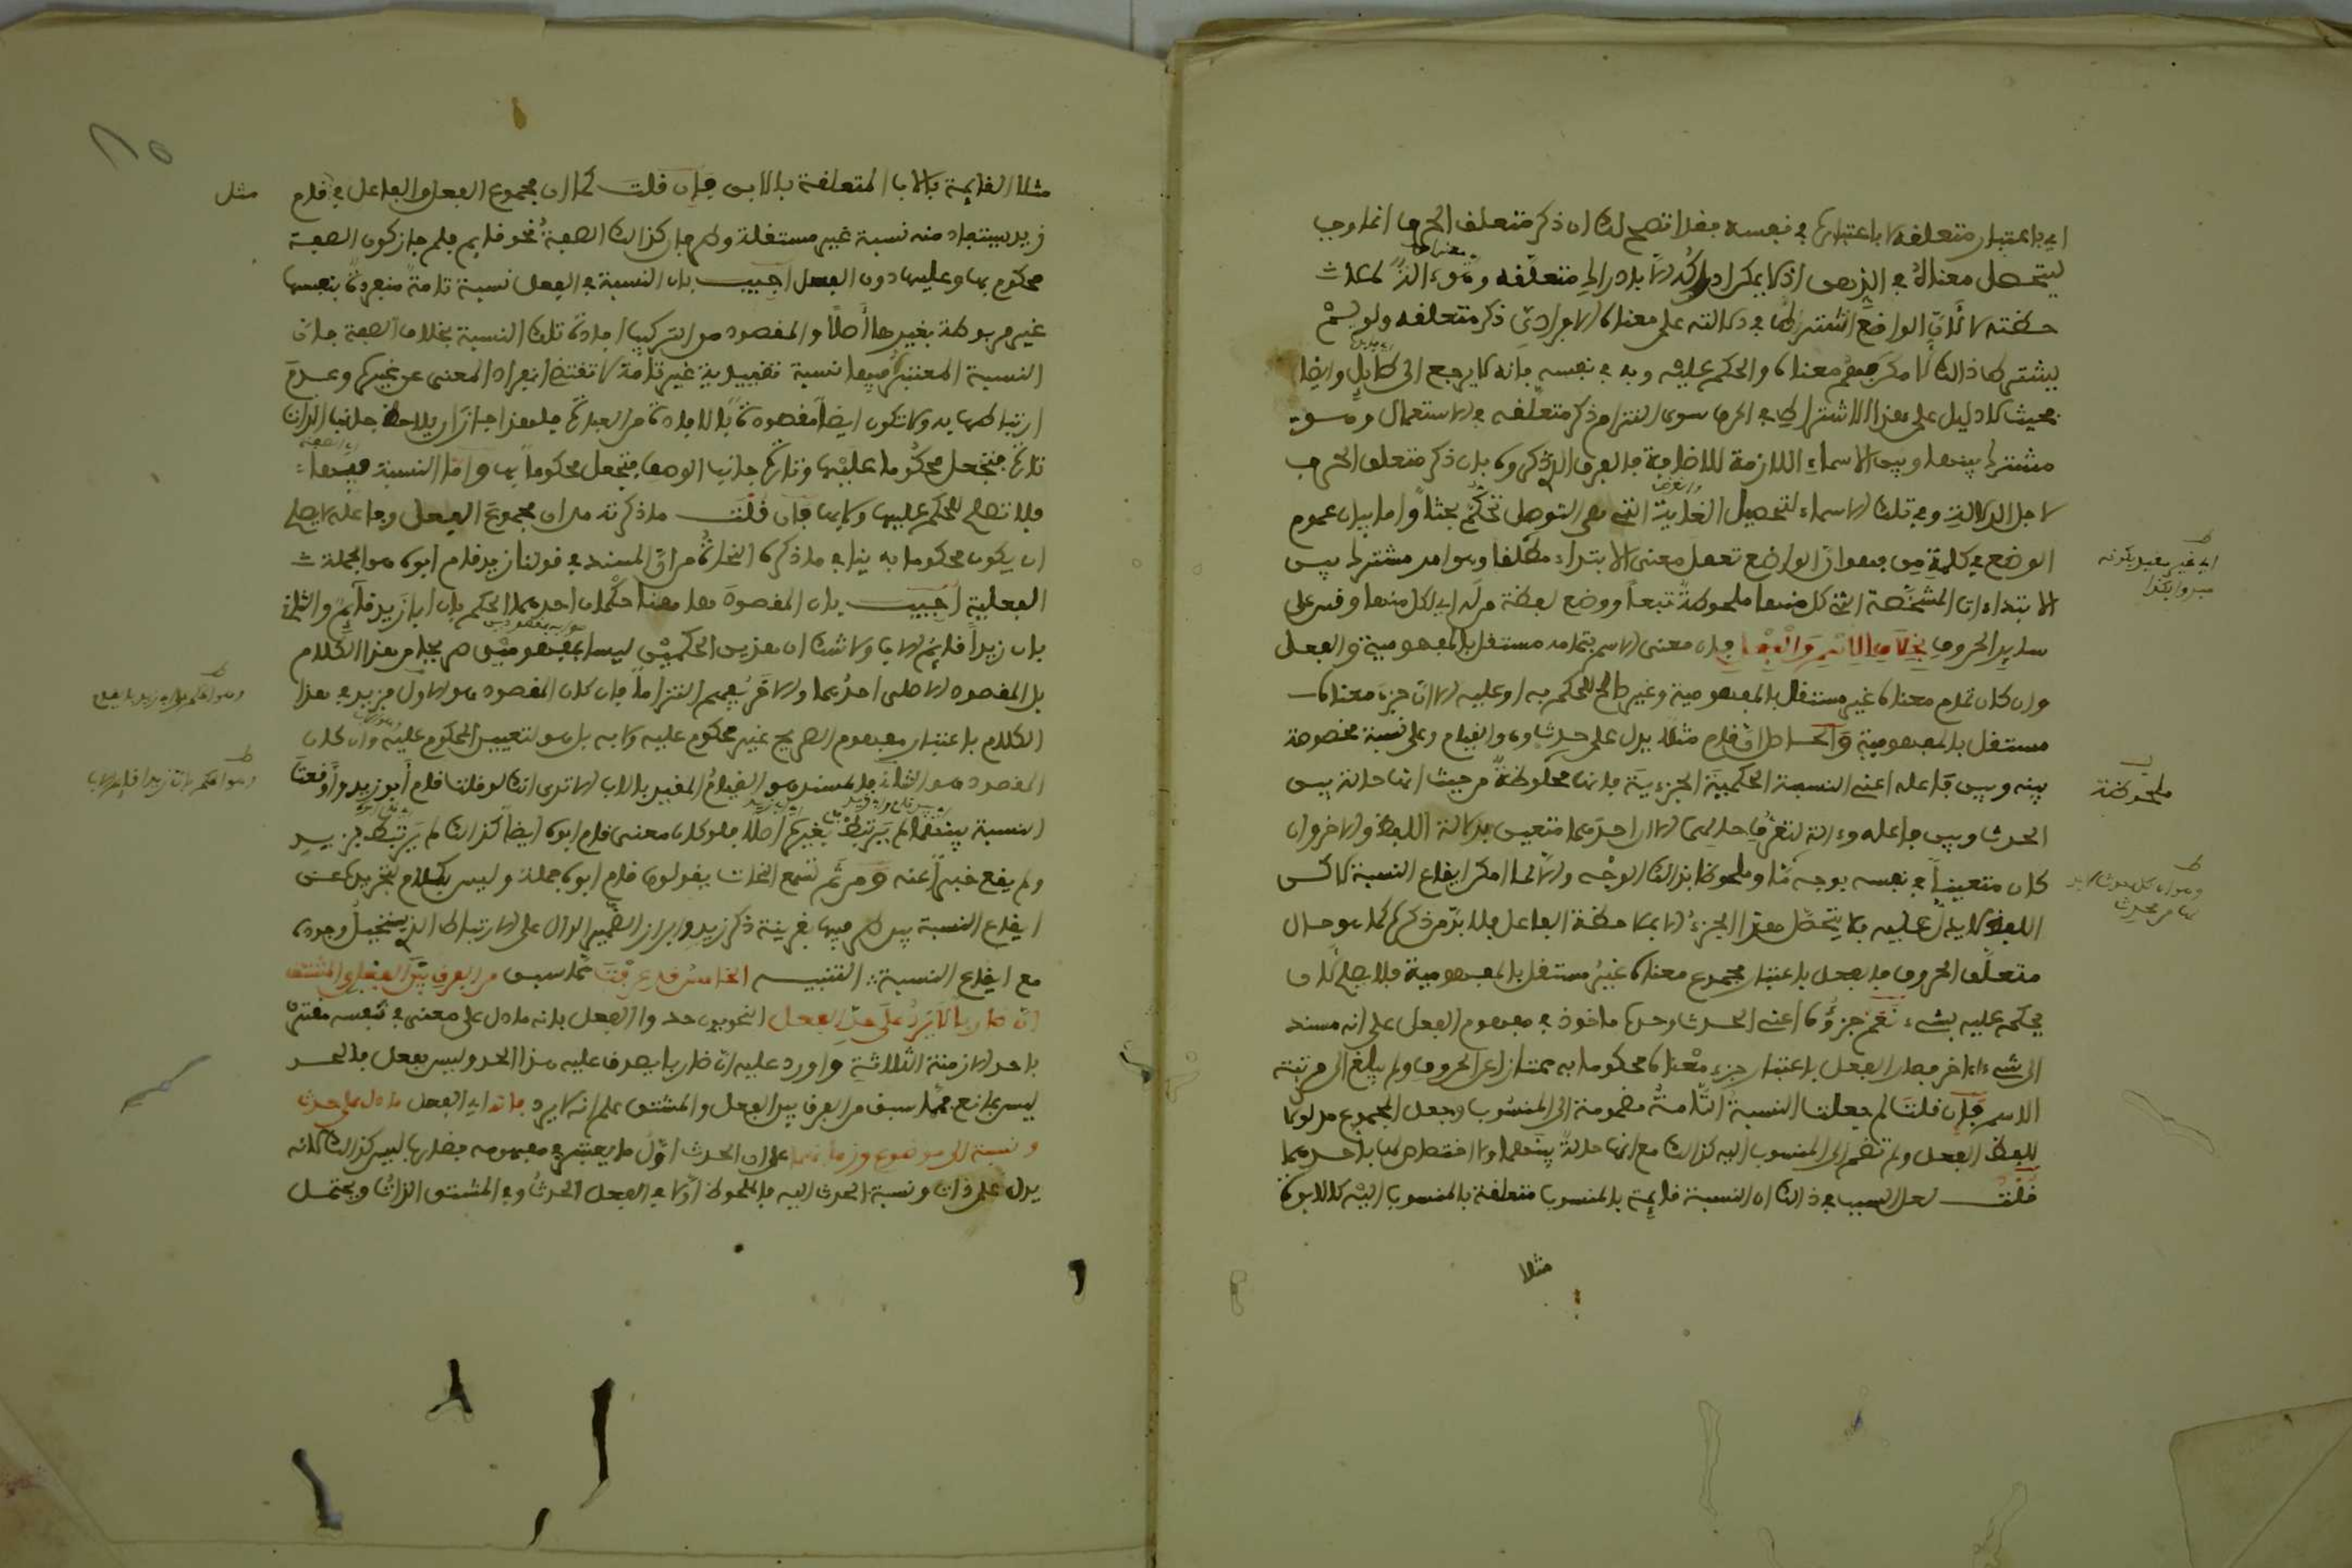 اي باعتبار متعلقه لا باعتباره في نفسه فقد اتضح لك ان ذكر متعلق الحرف انما وجب
ليتحصل معناه في الذهن اذ لا يمكن ادراكه الا بادراك متعلقه
لا لان الواضع اشترط في دلالته على معناه الافرادي ذكر متعلقه ولو لم
يشترط ذلك لامكن فهم معناه والحكم عليه وبه في نفسه فانه لا يرجع الى طايل وايضا
بحيث لا دليل على هذا الاشتراط في الحرف سوى التزام ذكر متعلقه في الاستعمال وهو
مشترك بينها وبين الاسماء اللازمة للاضافة فالفرق الذي ذكروه بان ذكر متعلق الحرف
لاجل الدلالة وفي تلك الاسماء لتحصيل الغاية التي هي التوصل تحكم بحت واما بيان عموم
الوضع في كلمة من فهو ان الواضع تعقل معنى الابتداء مطلقا وهو امر مشترك بين
الابتداءات المشخصة التي كل منها ملحوظة تبعا ووضع لفظة من له اي لكل منها وقس على
ساير الحروف بخلاف الاسم والفعل فان معنى الاسم بتمامه مستقل بالمفهومية والفعل
وان كان تمام معناه غير مستقل بالمفهومية وغير صالح للحكم به او عليه الا ان جزء معناه
مستقل بالمفهومية والحاصل ان قام مثلا يدل على حدث وهو القيام وعلى نسبة مخصوصة
بينه وبين فاعله اعني النسبة الحكمية الجزءية فانها ملحوظة من حيث انها حالة بين
الحدث وبين فاعله وءالة لتعرف حالهما الا ان احدهما متعين بدلالة اللفظ والاخر وان
كان متعينا في نفسه بوجه ما وملحوظا بذلك الوجه والا لما امكن ايقاع النسبة لاكن
اللفظ لا يدل عليه فلا يتحصل هذا الجزء الا بملاحظة الفاعل فلا بد من ذكره كما هو حال
متعلق الحروف فالفعل باعتبار مجموع معناه غير مستقل بالمفهومية فلا يصلح لان
يحكم عليه بشيء نعم جزؤه اعني الحدث وحده ماخوذ في مفهوم الفعل على انه مسند
الى شيء ءاخر فصار الفعل باعتبار جزء معناه محكوما به ممتازا عن الحروف ولم يبلغ الى مرتبة
الاسم فان قلت لم جعلت النسبة التامة مضمومة الى المنسوب وجعل المجموع مدلولا
للفظ الفعل ولم تضم الى المنسوب اليه كذلك مع انها حالة بينهما ولا اختصاص لها باحدهما
قلت لعل السبب في ذلك ان النسبة قايمة بالمنسوب متعلقة بالمنسوب اليه كالابوة
مثلا
ملحوظة
مثلا القايمة بالاب المتعلقة بالابن فان قلت كما ان مجموع الفعل والفاعل في قام
مثل
زيد يستفاد منه نسبة غير مستقلة كذلك الصفة نحو قايم فلم جاز كون الصفة
محكوم بها وعليها دون الفعل اجيب بان النسبة في الفعل نسبة تامة منفردة بنفسها
غير مربوطة بغيرها اصلا والمقصود من التركيب افادة تلك النسبة بخلاف الصفة فان
النسبة المعتبرة فيها نسبة تقييدية غير تامة لا تقتضي انفراد المعنى عن غيره وعدم
ارتباطها به ولا تكون ايضا مقصودة بالافادة من العبارة فلهذا جاز ان يلاحظ جانب الذات
تارة فتجعل محكوما عليها وتارة جانب الوصف فتجعل محكوما بها واما النسبة فيها
فلا تصلح للحكم عليها ولا بها فان قلت ما ذكرته من ان مجموع الفعل وفاعله لا يصلح
ان يكون محكوما به ينافي ما ذكره النحاة من ان المسند في قولنا زيد قام ابوه هو الجملة
الفعلية اجيب بان المقصود هاهنا حكمان احدهما الحكم بان ابا زيد قايم والثاني
بان زيدا قايم الاب ولا شك ان هذين الحكمين ليسا بمفهومين صريحا من هذا الكلام
بل المقصود الاصلي احدهما والاخر يفهم التزاما فان كان المقصود هو الاول فزيد في هذا
الكلام باعتبار مفهوم الصريح غير محكوم عليه ولا به بل هو لتعيين المحكوم عليه وان كان
المقصود هو الثاني فالمسند هو القيام المقيد بالاب الا ترى انك لو قلت قام ابو زيد واوقعت
النسبة بينهما لم يرتبط بغيره اصلا فلو كان معنى قام ابوه ايضا كذلك لم يرتبط بزيد
ولم يقع خبرا عنه ومن ثم تسمع النحاة يقولون قام ابوه جملة وليس بكلام لتجريده عن
ايقاع النسبة بين طرفيها بقرينة ذكر زيد وايراد الضمير الدال على الارتباط الذي يستحيل وجوده
مع ايقاع النسبة التنبيه الخامس قد عرفت مما سبق من الفرق بين الفعل والمشتق
ان ضاربا لا يرد على حد الفعل النحويون حدوا الفعل بانه ما دل على معنى في نفسه مقترن
باحد الازمنة الثلاثة واورد عليه ان ضاربا يصدق عليه هذا الحد وليس بفعل فالحد
ليس بمانع مما سبق من الفرق بين الفعل والمشتق علم انه لا يرد فانه اي الفعل ما دل على حدث
ونسبة الى موضوع وزمانها على ان الحدث اول ما يعتبر في مفهومه فضارب ليس كذلك لانه
يدل على ذات ونسبة الحدث اليه فالملحوظ اولا في الفعل الحدث وفي المشتق الذات ويحتمل